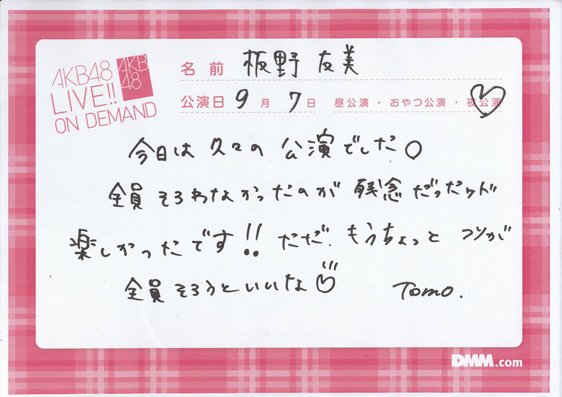 AKB48
LIVE!!
ON DEMAND
AKB
48
名前 板野友美
公演日 9月7日 昼公演・おやつ公演・夜公演
今日は久々の公演でした。
全員そろわなかったのが残念だったケド
楽しかったです!! ただ、もうちょっと が
全員そろうといいな♡
Tomo.
DMM.com